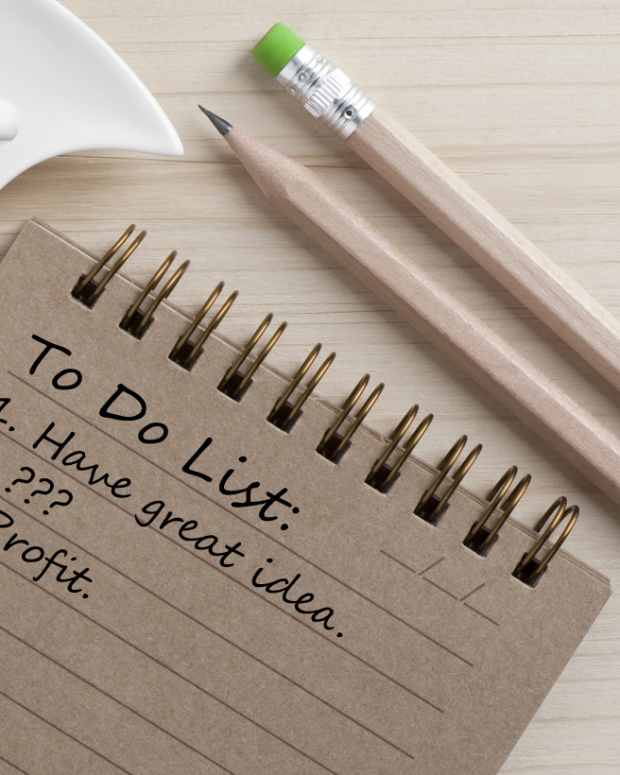 To Do List:
1. Have great idea.
???
Profit.